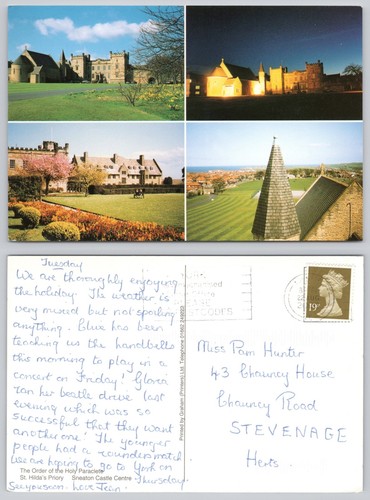 Tuesday
We are thoroughly enjoying
the holiday. The weather is
very mixed but not spoiling
anything. Clive has been
teaching us the handbells
this morning to play in a
concert on Friday! Gloria
ran her beetle drive last
evening which was so
successful that they want
another one. The younger
people had a rounders match
We are hoping to go to York on
Thursday
See you soon. Love Jean.
The Order of the Holy Paraclete
St. Hilda's Priory Sneaton Castle Centre
Printed by Graham (Printers) Ltd. Telephone
19p
Miss Pam Hunter
43 Chauncy House
Chauncy Road
STEVENAGE
Herts.